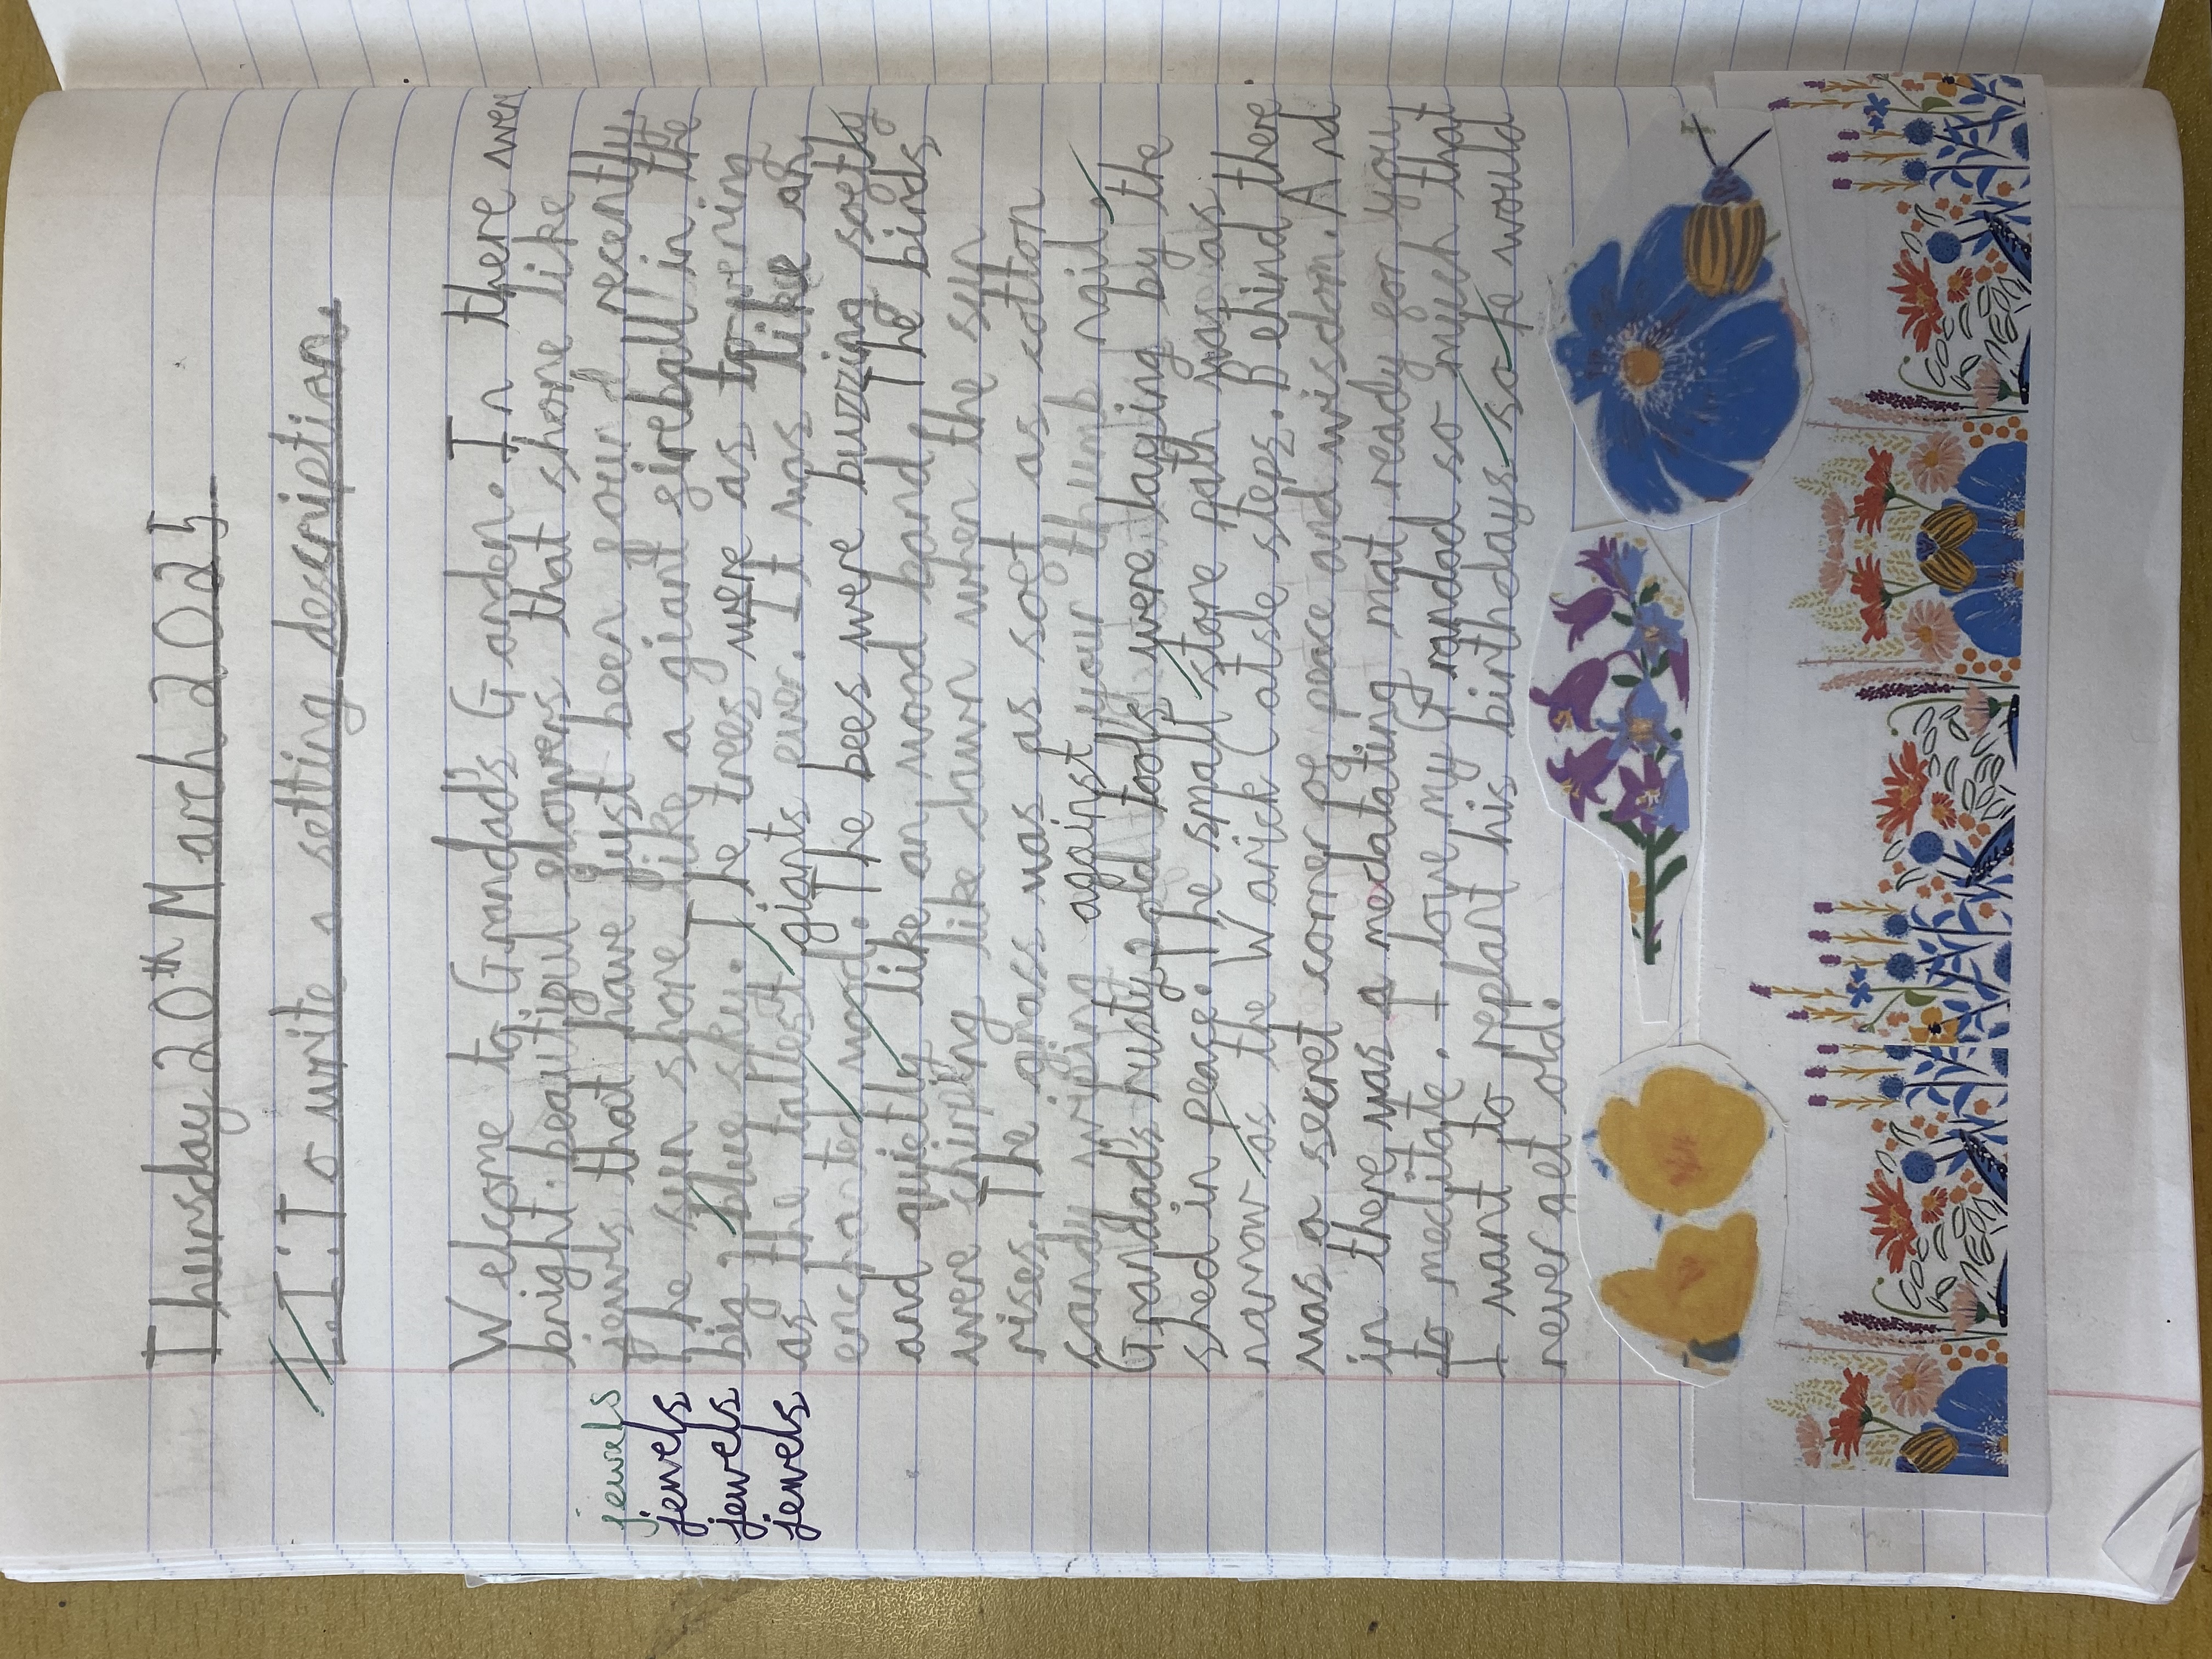 Thursday 20th March 2025
L.I: To write a setting description.
Welcome to Grandad's Garden. In there wer
bright beautiful flowers that shone like
jewels that have just been four recently
jewels
The sun shone like a giant fireball in the
jewels
big blue sky. The trees were as towering
jewels
as the tallest giants ever. It was like an
jewels
enchanted wood. The bees were buzzing softly
and quietly like an wood band. The birds
were chirping like dawn when the sun
rises. The grass was as soft as cotton
candy wiping against your thumb nail
Grandad's rusty old tools were laying by the
shed in peace. The small stone path was as
narrow as the Warick Catsle steps. Behind there
was a secret corner of peace and wisdom. And
in there was a medatating mat ready for you
to meditate. I love my Grandad so much that
I want to replant his birthdays so he would
never get old.